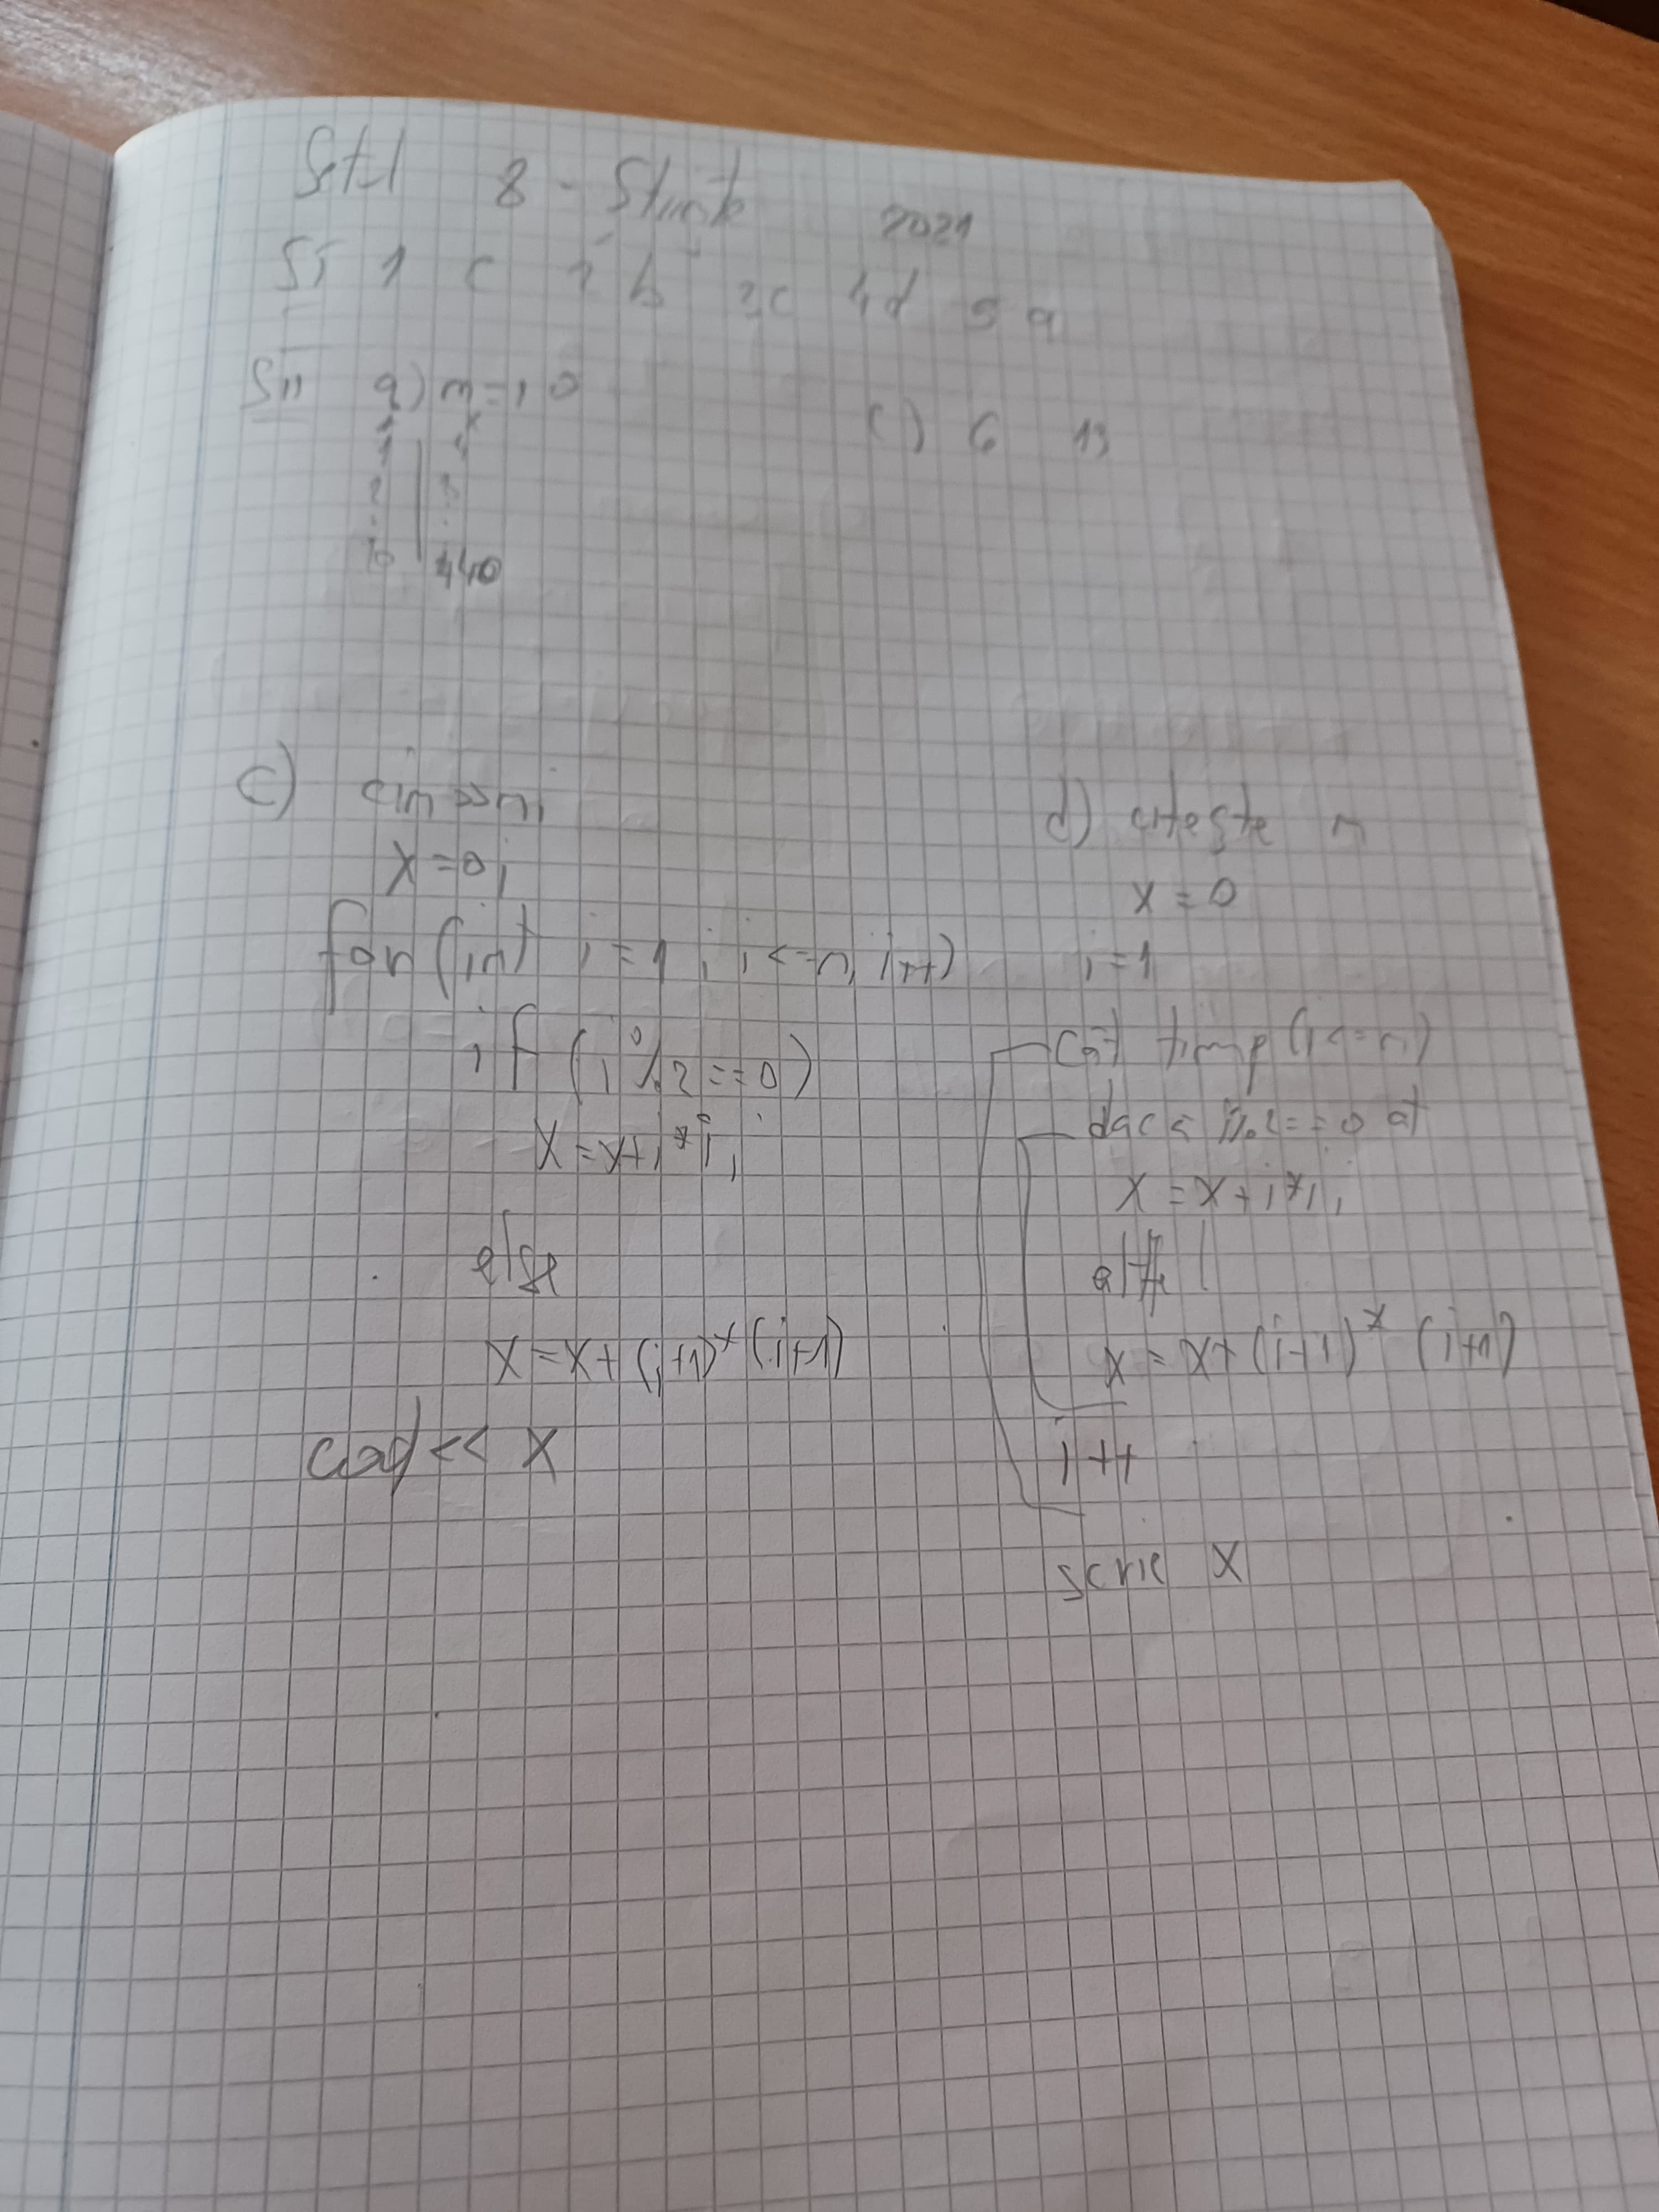 8 - 2021
SI 1 c 2 b 3c 4d 5 a
SII a) n=10
c) 6 13
1
2 3
10 440
c) cin>>n;
x=0;
for(int i=1; i<=n; i++)
if (i%2==0)
x=x+i*i;
else
x=x+(i+1)*(i+1)
cout<< x
d) citeste n
x=0
i=1
Cat timp(i<=n)
daca i%2==0 at
x=x+i*i;
altf
x=x+(i+1)* (i+1)
i++
scrie x